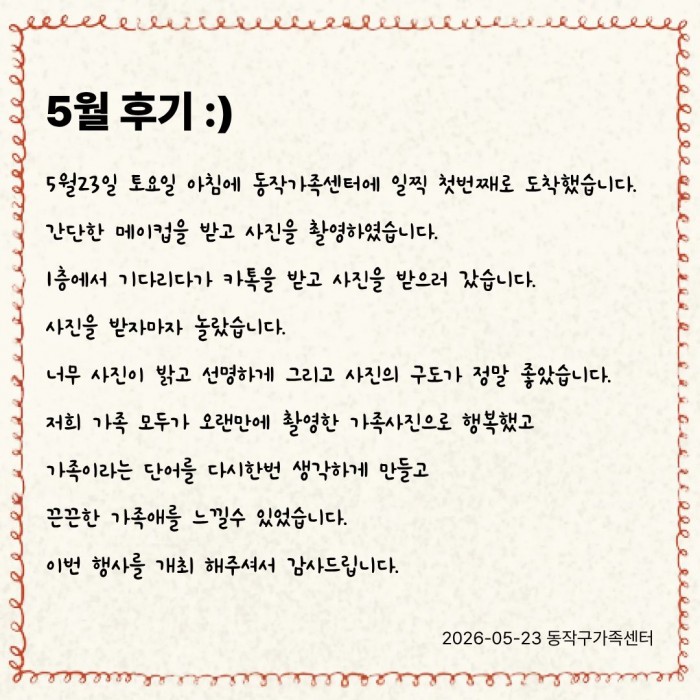 5월 후기 :)
5월23일 토요일 아침에 동작가족센터에 일찍 첫번째로 도착했습니다.
간단한 메이컵을 받고 사진을 촬영하였습니다.
1층에서 기다리다가 카톡을 받고 사진을 받으러 갔습니다.
사진을 받자마자 놀랐습니다.
너무 사진이 밝고 선명하게 그리고 사진의 구도가 정말 좋았습니다.
저희 가족 모두가 오랜만에 촬영한 가족사진으로 행복했고
가족이라는 단어를 다시한번 생각하게 만들고
끈끈한 가족애를 느낄수 있었습니다.
이번 행사를 개최 해주셔서 감사드립니다.
2026-05-23 동작구가족센터